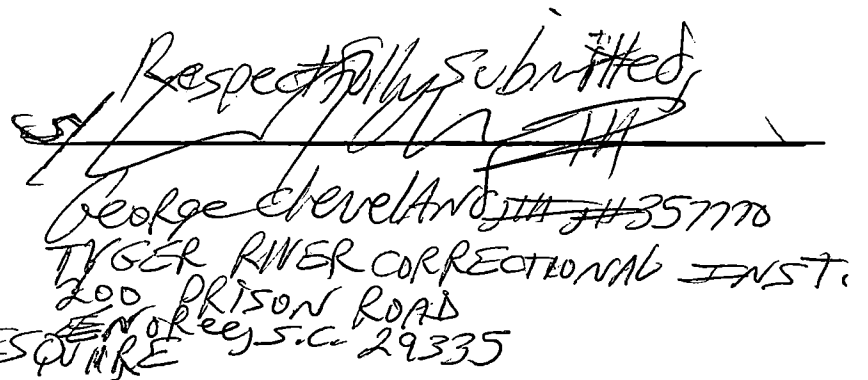 Respectfully Submitted,
S/
George Cleveland, III #357770
TYGER RIVER CORRECTIONAL INST.
200 PRISON ROAD
ENOREE, S.C. 29335
ESQUIRE